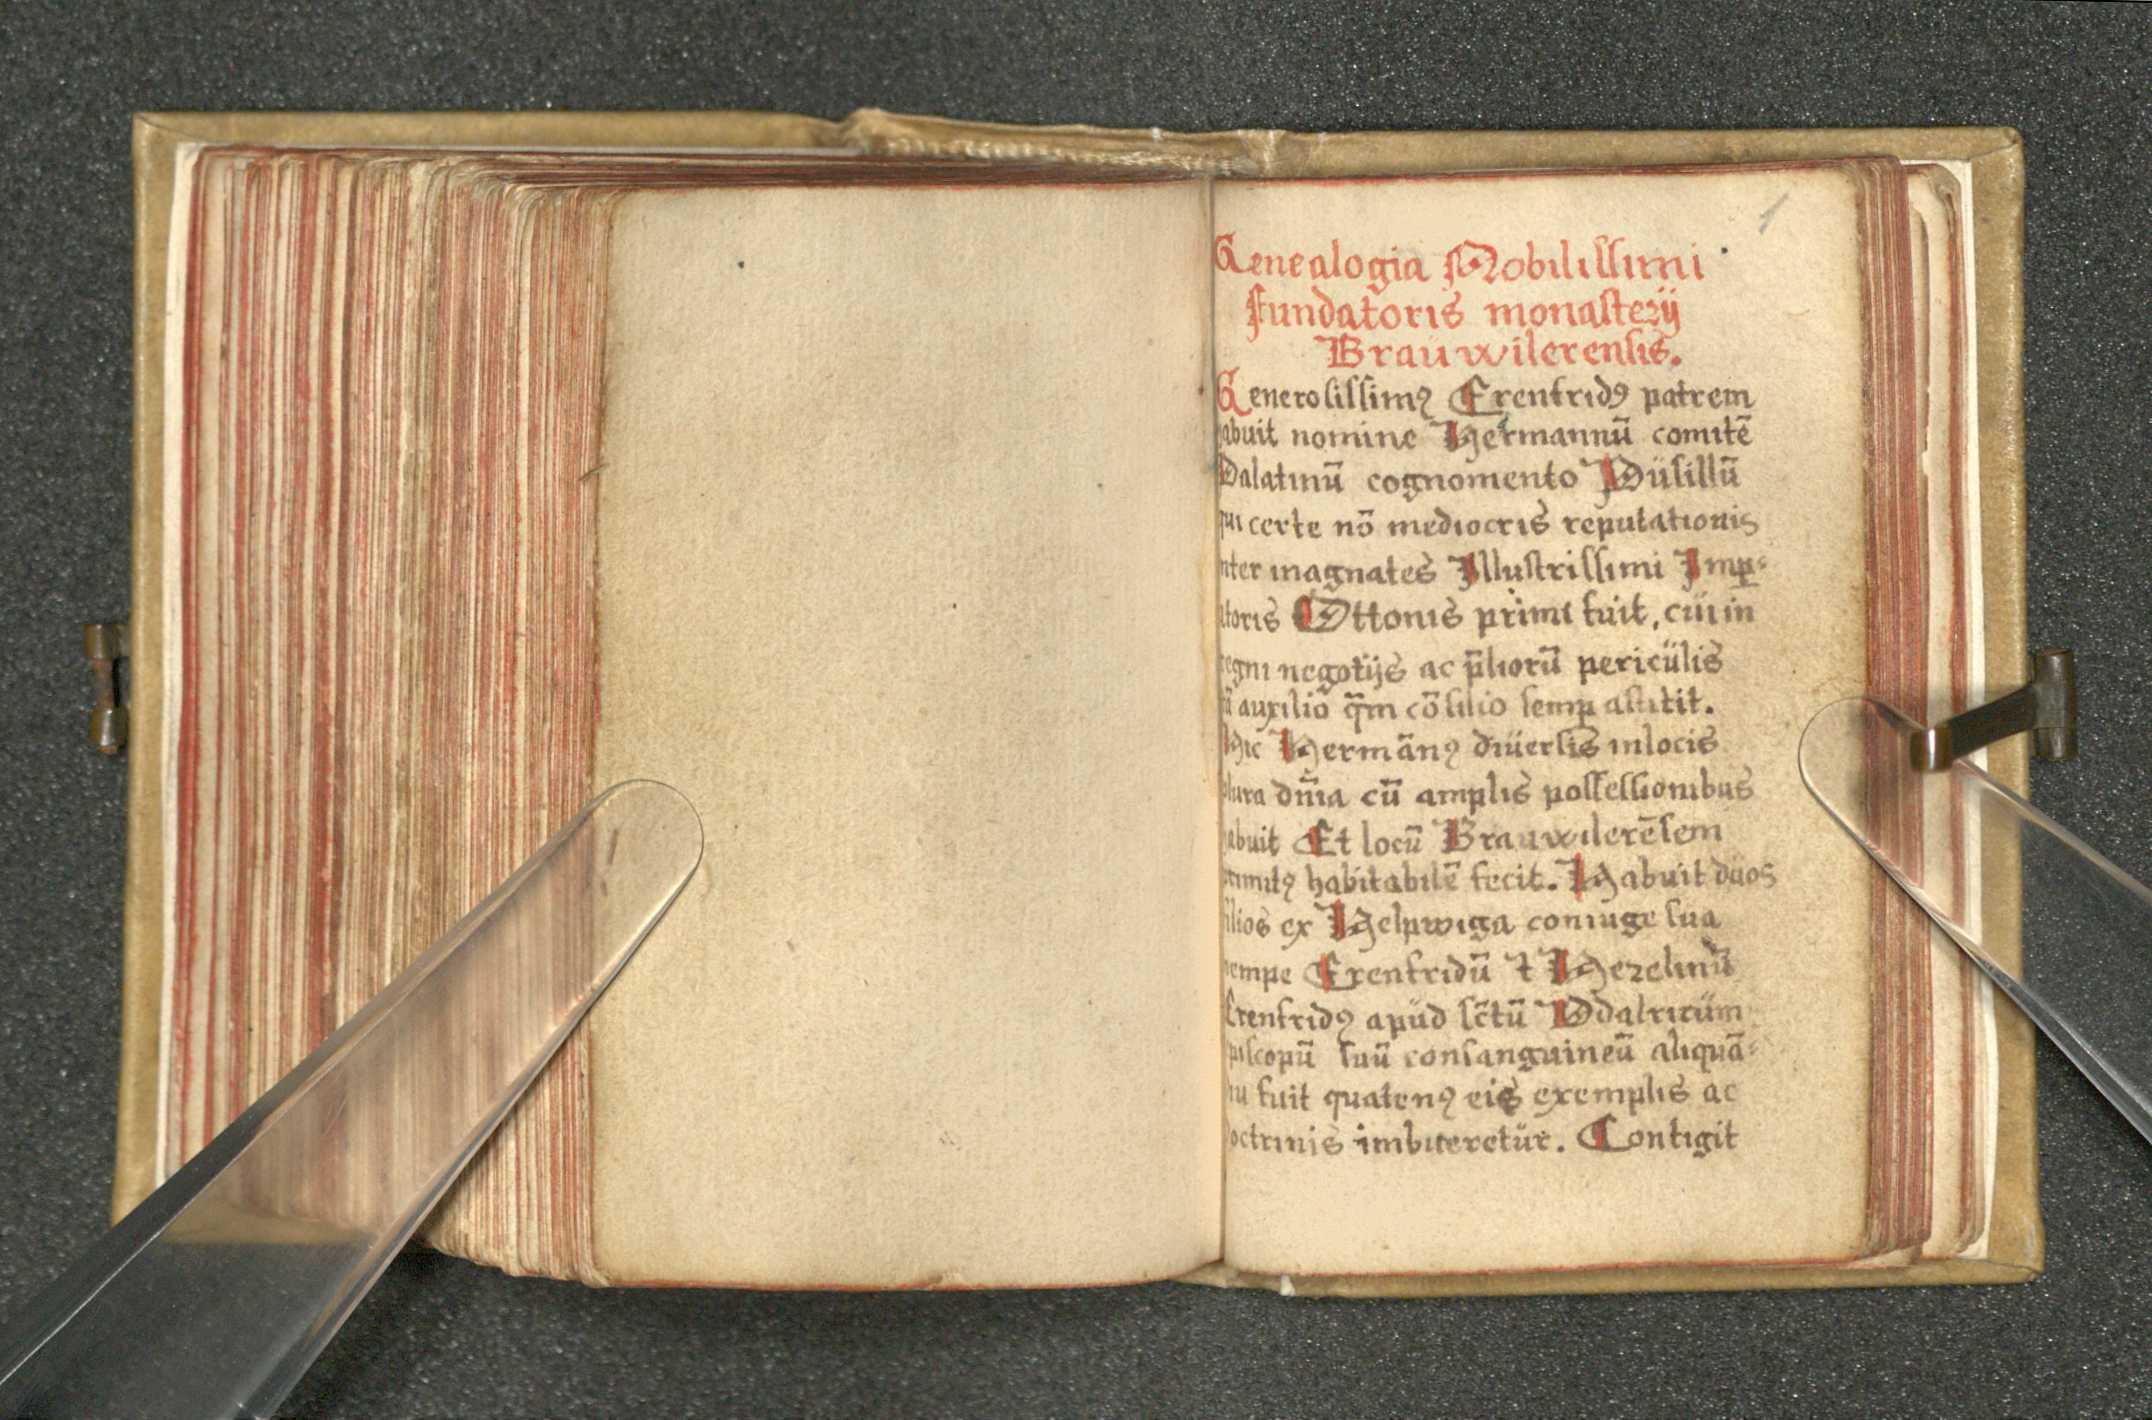 1
Genealogia Nobilissimi
Fundatoris monasterÿ
Braúwilerensis.
Generosissimꝰ Erenfridꝰ patrem
abuit nomine Hermannū comitē
Palatinū cognomento Púsillū
qui certe nō mediocris reputationis
nter magnates Illustrissimi Imꝑ⸗
atoris Ottonis primi fuit, cúi in
regni negotÿs ac p̄liorū pericúlis
auxilio q̄m cōsilio semꝑ astitit.
Hic Hermānꝰ diúersis in locis
plura dn̄ia cū amplis possessionibus
abuit Et locū Brauwilerēsem
habitabilē fecit. Habuit dúos
filios ex Helpwiga coniuge sua
nempe Erenfridū ⁊ Hezelinū
Erenfridꝰ apúd sc̄tū Vdalricúm
piscopū suū consanguineū aliquā⸗
iu fuit quatenꝰ eiꝰ exemplis ac
doctrinis imbueretúr. Contigit